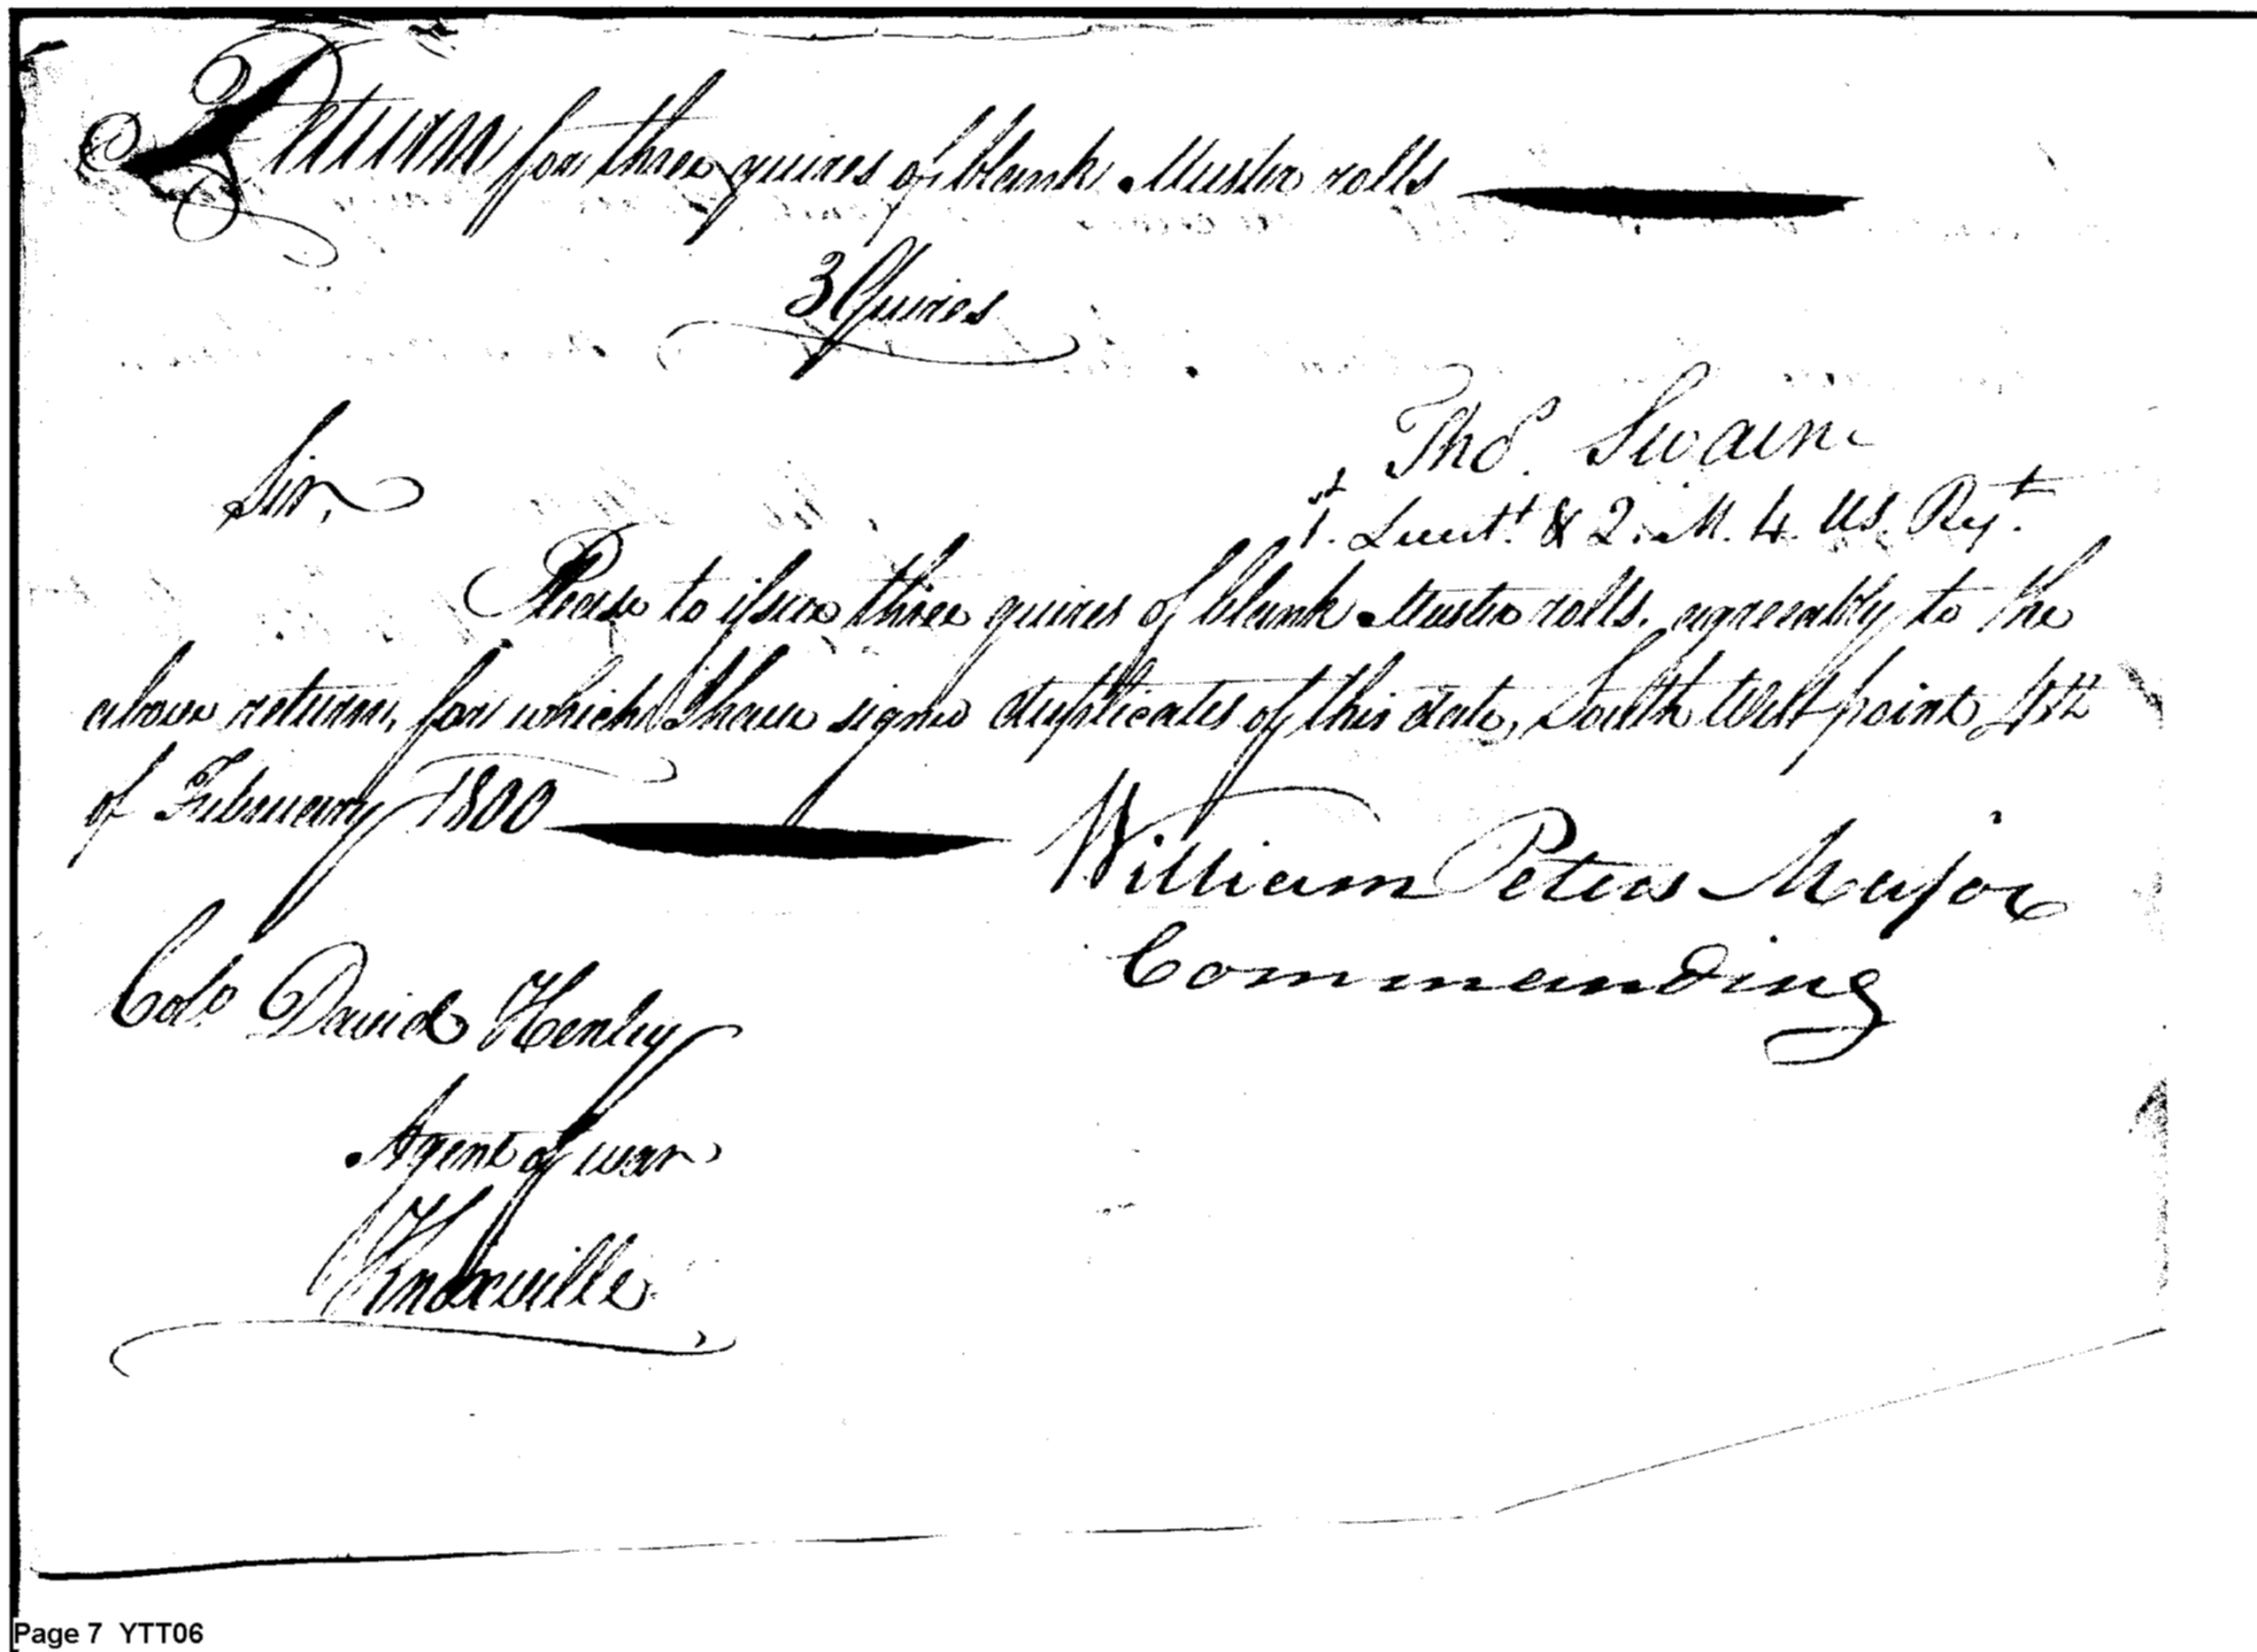 Return for three quires of blank Muster rolls
3 Quires
Thos. Swaine
1st. Lieut. & Q. M. 4. US. Regt.
Sir,
Please to issue three quires of blank Muster rolls, agreeably to the
above return, for which I have signed duplicates of this date, South West point 4th
of February 1800
William Peters Major
Commanding
Colo David Henley
Agent of war
Knoxville
Page 7 YTT06